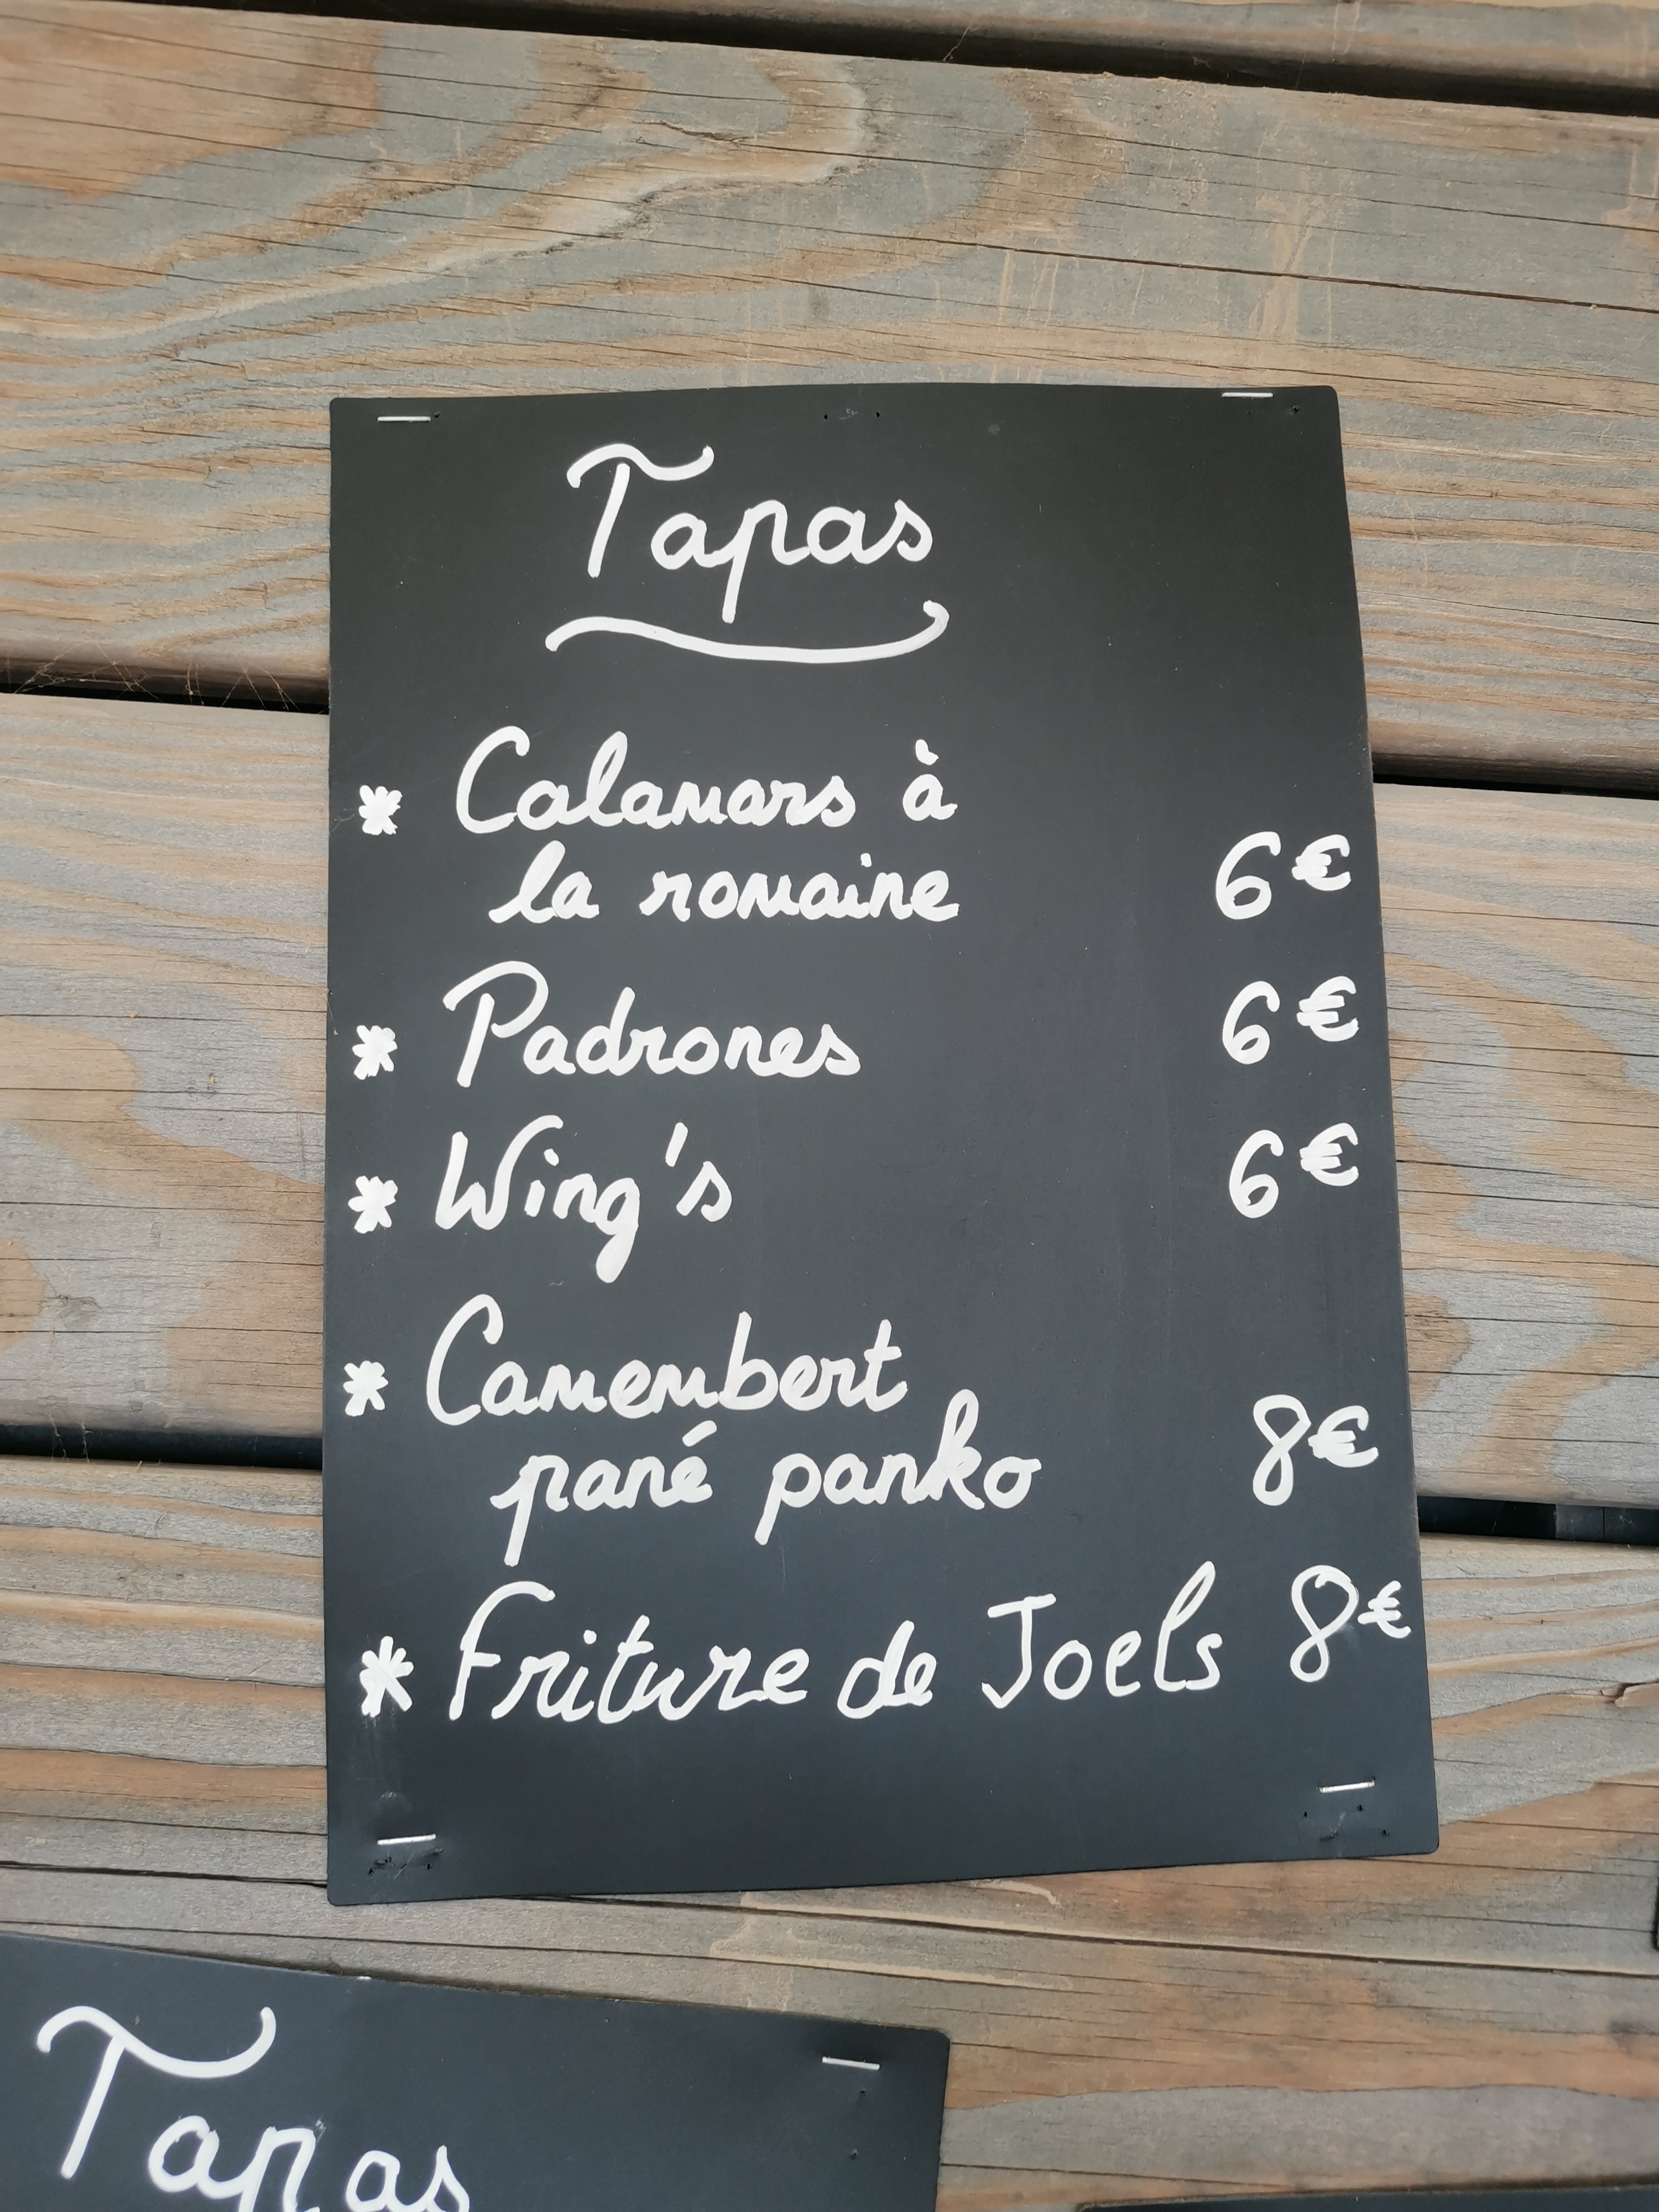 Tapas
* Calamars à
la romaine 6€
* Padrones 6€
* Wing's 6€
* Camembert
pané panko 8€
* Friture de Joels 8€
Tapas